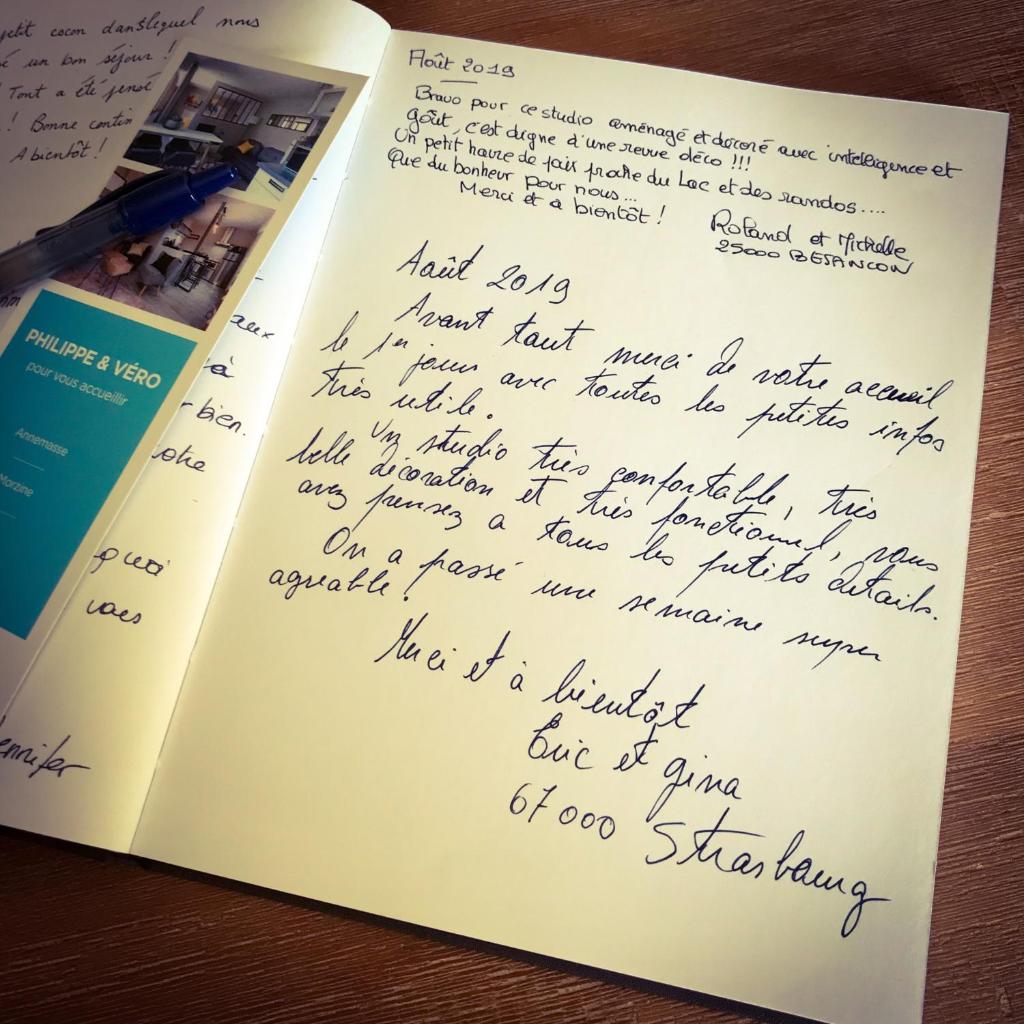 petit cocon dans lequel nous
un bon séjour !
Tout a été pensé
! Bonne contin
A bientôt !
PHILIPPE & VÉRO
pour vous accueillir
Annemasse
Morzine
aux
à
bien.
votre
vous
ennifer
Août 2019
Bravo pour ce studio aménagé et décoré avec intelligence et
goût, c'est digne d'une revue déco !!!
Un petit havre de paix proche du Lac et des randos....
Que du bonheur pour nous...
Merci et a bientôt !
Roland et Michelle
25000 BESANCON
Août 2019
Avant tout merci de votre acceuil
le 1er jours avec toutes les petites infos
très utile.
Un studio très confortable, très
belle décoration et très fonctionnel, vous
avez pensez a tous les petits détails.
On a passé une semaine super
agréable !
Merci et à bientôt
Eric et gina
67000 Strasbourg